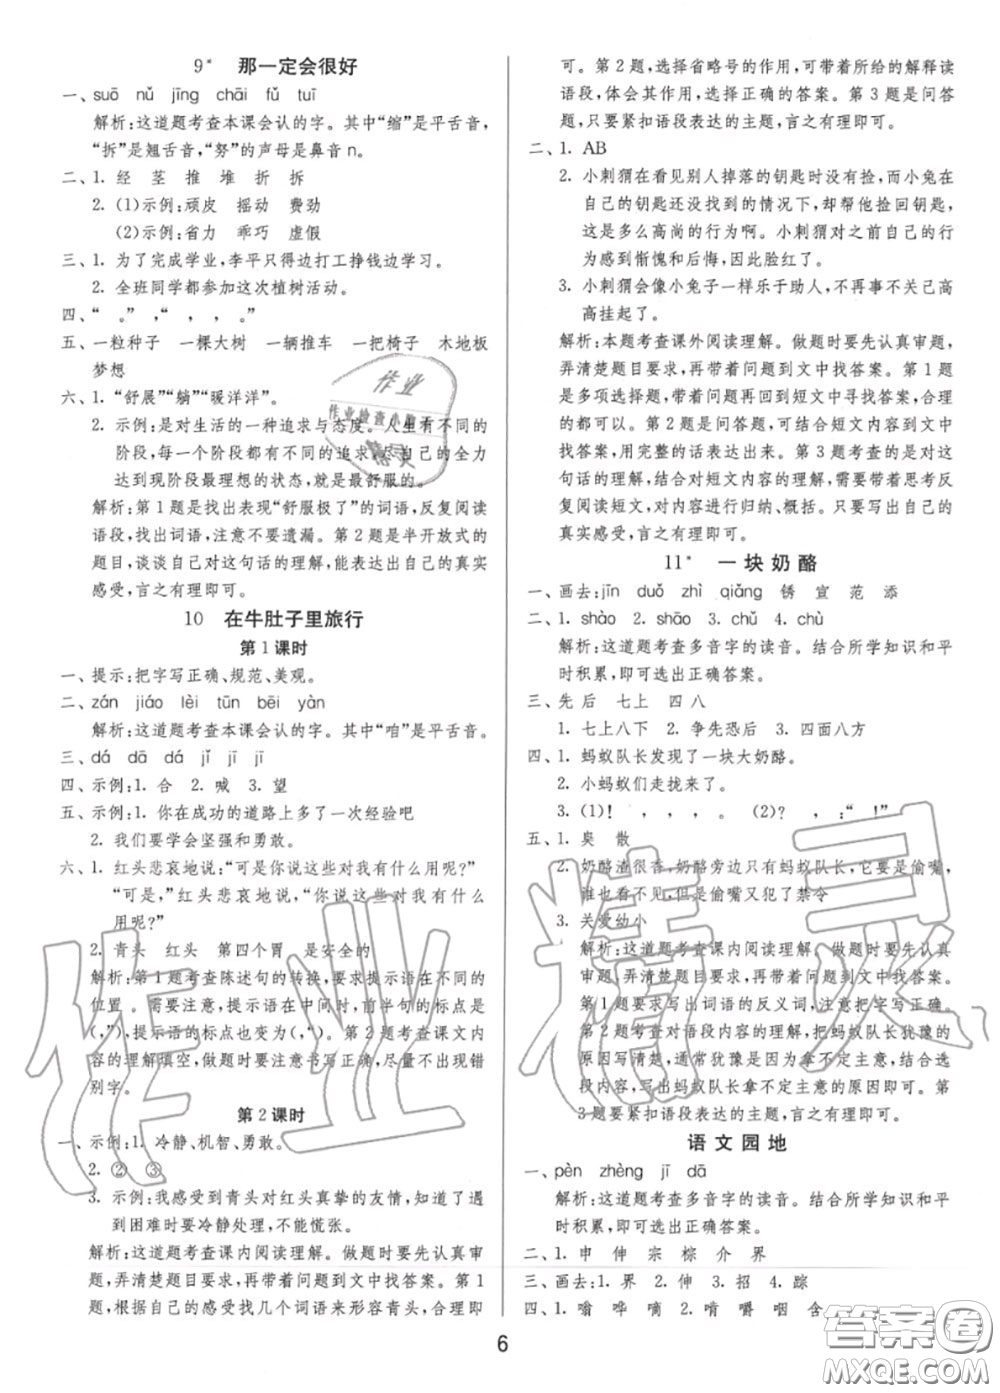 9* 那一定会很好
一、suō nǔ jīng chāi fǔ tuī
解析:这道题考查本课会认的字。其中“缩”是平舌音,
“拆”是翘舌音,“努”的声母是鼻音n。
二、1. 经 茎 推 堆 折 拆
2. (1)示例:顽皮 摇动 费劲
(2)示例:省力 乖巧 虚假
三、1. 为了完成学业,李平只得边打工挣钱边学习。
2. 全班同学都参加这次植树活动。
四、“ 。” ,“ , , 。”
五、一粒种子 一棵大树 一辆推车 一把椅子 木地板
梦想
六、1. “舒展”“躺”“暖洋洋”。
2. 示例:是对生活的一种追求与态度。人生有不同的
阶段,每一个阶段都有不同的追求,尽自己的全力
达到现阶段最理想的状态,就是最舒服的。
解析:第1题是找出表现“舒服极了”的词语,反复阅读
语段,找出词语,注意不要遗漏。第2题是半开放式的
题目,谈谈自己对这句话的理解,能表达出自己的真实
感受,言之有理即可。
10 在牛肚子里旅行
第1课时
一、提示:把字写正确、规范、美观。
二、zán jiáo lèi tūn bēi yàn
解析:这道题考查本课会认的字。其中“咱”是平舌音。
三、dá dā dá jǐ jī jǐ
四、示例:1. 合 2. 喊 3. 望
五、示例:1. 你在成功的道路上多了一次经验吧
2. 我们要学会坚强和勇敢。
六、1. 红头悲哀地说:“可是你说这些对我有什么用呢?”
“可是,”红头悲哀地说,“你说这些对我有什么
用呢?”
2. 青头 红头 第四个胃 是安全的
解析:第1题考查陈述句的转换,要求提示语在不同的
位置。需要注意,提示语在中间时,前半句的标点是
(,”),提示语的标点也变为(,“)。第2题考查课文内
容的理解填空,做题时要注意书写正确,尽量不出现错
别字。
第2课时
一、示例:1. 冷静、机智、勇敢。
2. ② ③
3. 示例:我感受到青头对红头真挚的友情,知道了遇
到困难时要冷静处理,不能慌张。
解析:这道题考查课内阅读理解。做题时要先认真审
题,弄清楚题目要求,再带着问题到文中找答案。第1
题,根据自己的感受找几个词语来形容青头,合理即
可。第2题,选择省略号的作用,可带着所给的解释读
语段,体会其作用,选择正确的答案。第3题是问答
题,只要紧扣语段表达的主题,言之有理即可。
二、1. AB
2. 小刺猬在看见别人掉落的钥匙时没有捡,而小兔在
自己的钥匙还没找到的情况下,却帮他捡回钥匙,
这是多么高尚的行为啊。小刺猬对之前自己的行
为感到惭愧和后悔,因此脸红了。
3. 小刺猬会像小兔子一样乐于助人,不再事不关己高
高挂起了。
解析:本题考查课外阅读理解。做题时要先认真审题,
弄清楚题目要求,再带着问题到文中找答案。第1题
是多项选择题,带着问题再回到短文中寻找答案,合理
的都可以。第2题带着问题去文中找答案,可结合短文中
找答案,用完整的话表达出来。第3题考查的是对这
句话的理解,结合对短文内容的理解,需要带着思考反
复阅读短文,对内容进行归纳、概括。只要写出自己的
真实感受,言之有理即可。
11* 一块奶酪
一、画去:jīn duǒ zhì qiǎng 锈 宣 范 添
二、1. shào 2. shāo 3. chǔ 4. chù
解析:这道题考查多音字的读音。结合所学知识和平
时积累,即可选出正确答案。
三、先 后 七 上 四 八
1. 七上八下 2. 争先恐后 3. 四面八方
四、1. 蚂蚁队长发现了一块大奶酪。
2. 小蚂蚁们走拢来了。
3. (1)! , , , 。 (2)? , :“ !”
五、1. 臭 散
2. 奶酪渣很香,奶酪旁边只有蚂蚁队长,它要是偷嘴,
谁也看不见,但是偷嘴又犯了禁令
3. 关爱幼小
解析:这道题考查课内阅读理解。做题时要先认真
审题,弄清楚题目要求,再带着问题到文中找答案。
第1题要求写出词语的反义词,注意把字写正确。
第2题考查对语段内容的理解,把蚂蚁队长犹豫的
原因写清楚,通常犹豫是因为拿不定主意,结合选
段内容,写出蚂蚁队长拿不定主意的原因即可。第
3题要紧扣语段表达的主题,言之有理即可。
语文园地
一、pèn zhèng jǐ dā
解析:这道题考查多音字的读音。结合所学知识和平
时积累,即可选出正确答案。
二、1. 申 伸 宗 棕 介 界
三、画去:1. 界 2. 伸 3. 招 4. 踪
四、1. 嗡 哗 嘀 2. 啃 嚼 咽 含
6
作业
作业检查小助手
作业精灵
答案圈
MXQE.COM